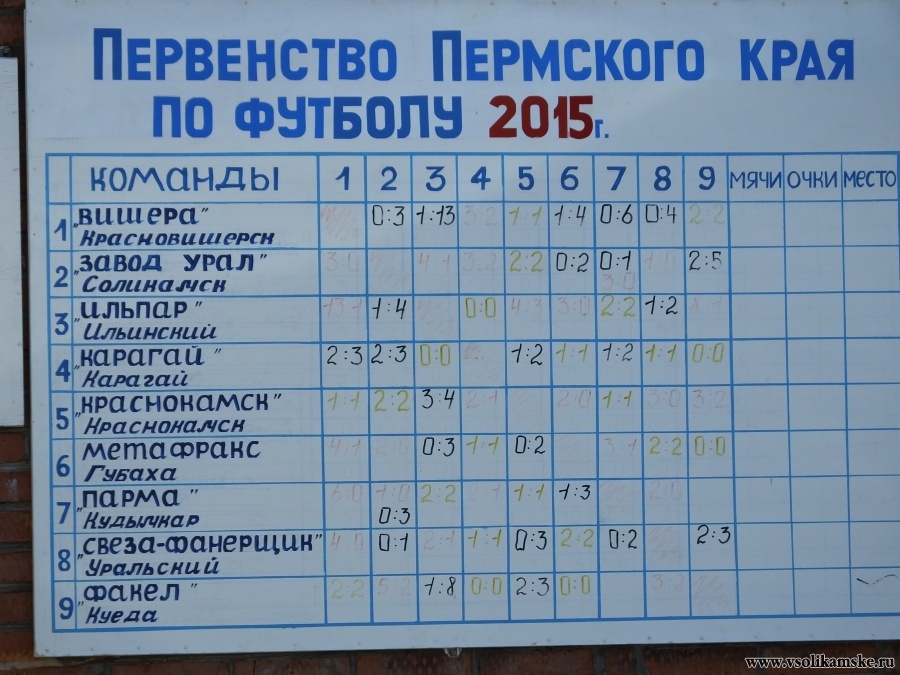 Первенство Пермского края
по футболу 2015г.
команды 1 2 3 4 5 6 7 8 9 мячи очки место
1 "Вишера" 0:3 1:13 3:2 1:1 1:4 0:6 0:4 2:2
Красновишерск
2 "завод Урал" 3:0 4:1 3:2 2:2 0:2 0:1 1:0 2:5
Соликамск 3:0
3 "Ильпар" 13:1 1:4 0:0 4:3 3:0 2:2 1:2 8:1
Ильинский
4 "Карагай" 2:3 2:3 0:0 1:2 1:1 1:2 1:1 0:0
Карагай
5 "Краснокамск" 1:1 2:2 3:4 2:1 2:0 1:1 3:0 3:2
Краснокамск
6 Метафракс 4:1 2:0 0:3 1:1 0:2 3:1 2:2 0:0
Губаха
7 "Парма" 6:0 1:0 2:2 2:1 1:1 1:3 2:0
Кудымкар 0:3
8 "Свеза-Фанерщик" 4:0 0:1 2:1 1:1 0:3 2:2 0:2 2:3
Уральский
9 "Факел" 2:2 5:2 1:8 0:0 2:3 0:0 3:2
Куеда
www.vsolikamske.ru